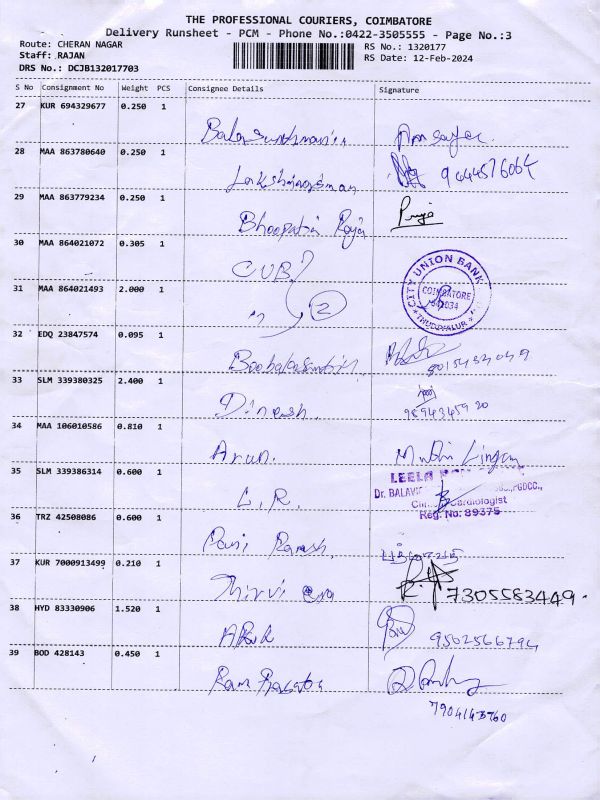 THE PROFESSIONAL COURIERS, COIMBATORE
Delivery Runsheet - PCM - Phone No.:0422-3505555 - Page No.:3
Route: CHERAN NAGAR
Staff: RAJAN
DRS No.: DCJB132017703
RS No.: 1320177
RS Date: 12-Feb-2024
S No Consignment No Weight PCS Consignee Details Signature
27 KUR 694329677 0.250 1
28 MAA 863780640 0.250 1
9444576064
29 MAA 863779234 0.250 1
Priya
Bhoopathi Raja
30 MAA 864021072 0.305 1
CUB
CITY UNION BANK
COIMBATORE
641034
31 MAA 864021493 2.000 1
2
32 EDQ 23847574 0.095 1
33 SLM 339380325 2.400 1
Dinesh
9894345920
34 MAA 106010586 0.810 1
Arun.
35 SLM 339386314 0.600 1
LEELA
Dr. BALAVI
Cardiologist
Reg. No: 89375
L.R.
36 TRZ 42508086 0.600 1
Ramesh
37 KUR 7000913499 0.210 1
7305583449
38 HYD 83330906 1.520 1
9502566794
39 BOD 428143 0.450 1
Ram
7904143760